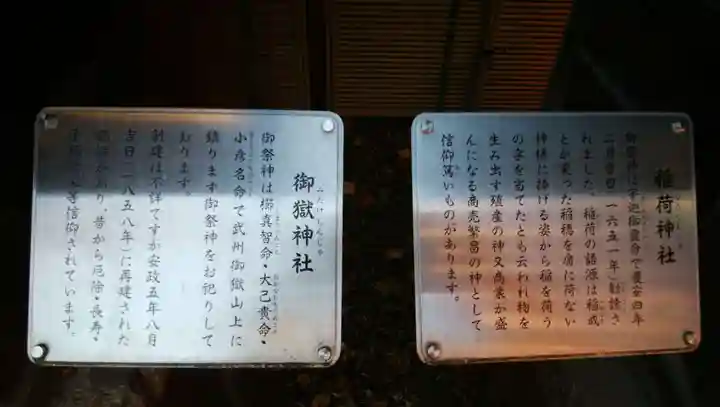 稲荷神社
御祭神は宇迦御霊命で慶安四年
二月吉日(一六五一年)勧請さ
れました。稲荷の語源は稲成
とか実った稲穂を肩に荷ない
神様に捧げる姿から稲を荷う
の字を当てたとも云われ物を
生み出す殖産の神又商業が盛
んになる商売繁昌の神として
信仰篤いものがあります。
御獄神社
みたけじんじゃ
御祭神は櫛真智命・大己貴命・
小彦名命で武州御獄山上に
鎮ります御祭神をお祀りして
おります。
創建は不詳ですが安政五年八月
吉日(一八五八年)に再建された
昔から厄除・長寿・
等信仰されています。